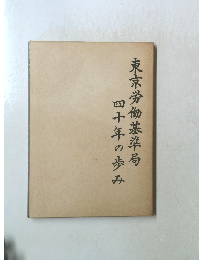 東京労働基準局
四十年の歩み